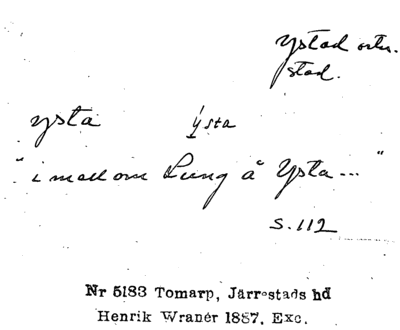 Ystad ortn.
stad.
ysta ýsta
"i mellom Lung å Ysta..."
s. 112
Nr 5183 Tomarp, Järrestads hd
Henrik Wranér 1887, Exc.